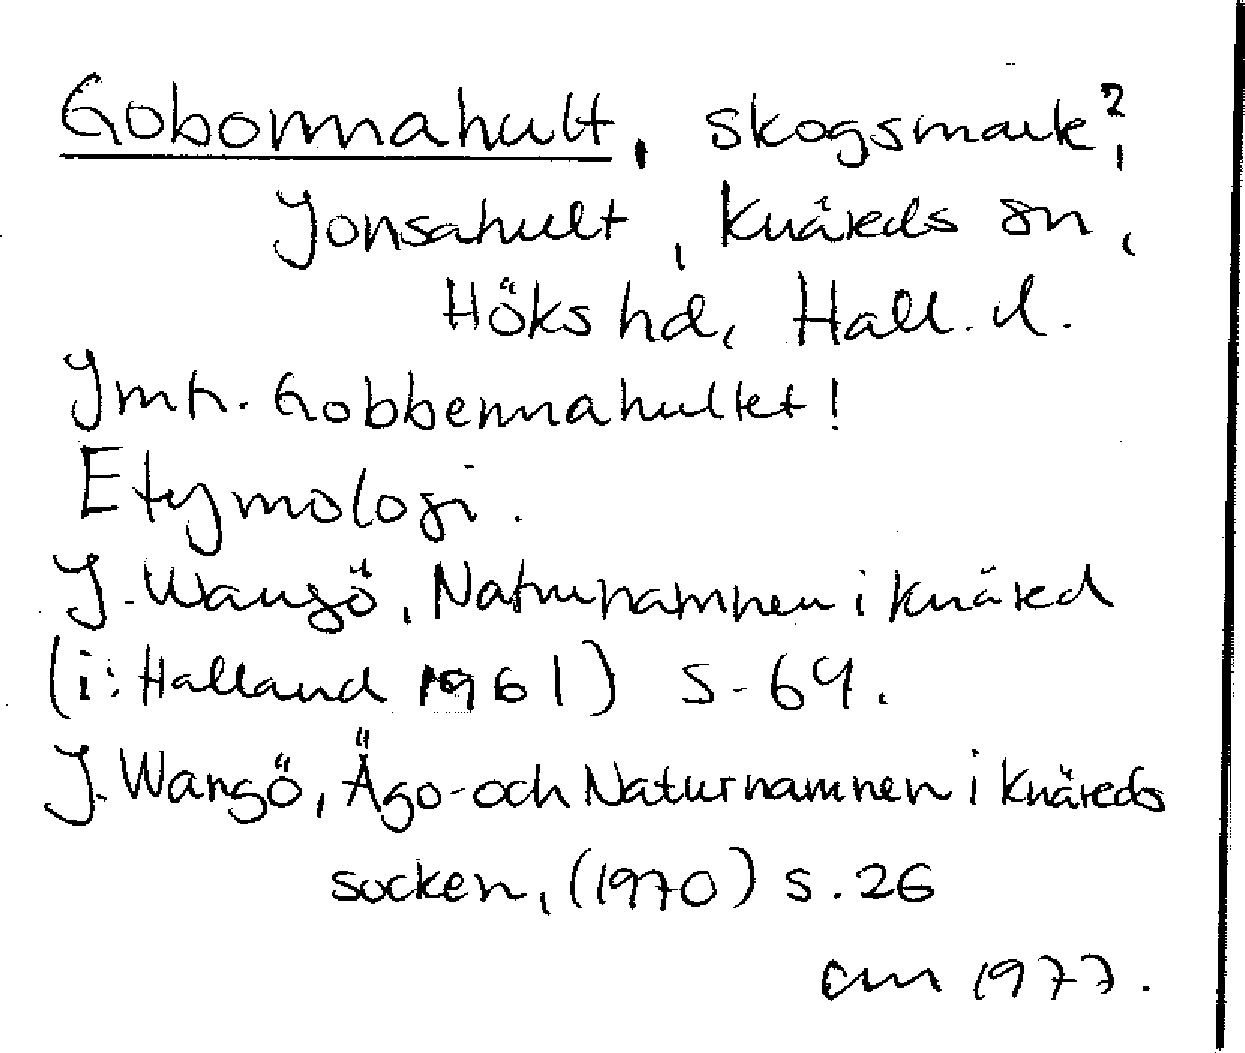 Gobonnahult, skogsmark?,
Jonsahult, Knäreds sn,
Höks hd, Hall. l.
Jmfr. Gobbennahultet!
Etymologi.
J. Wangö, Naturnamnen i Knäred
(i: Halland 1961) s. 64.
J. Wangö, Ägo- och Naturnamnen i Knäreds
socken, (1970) s. 26
1977.